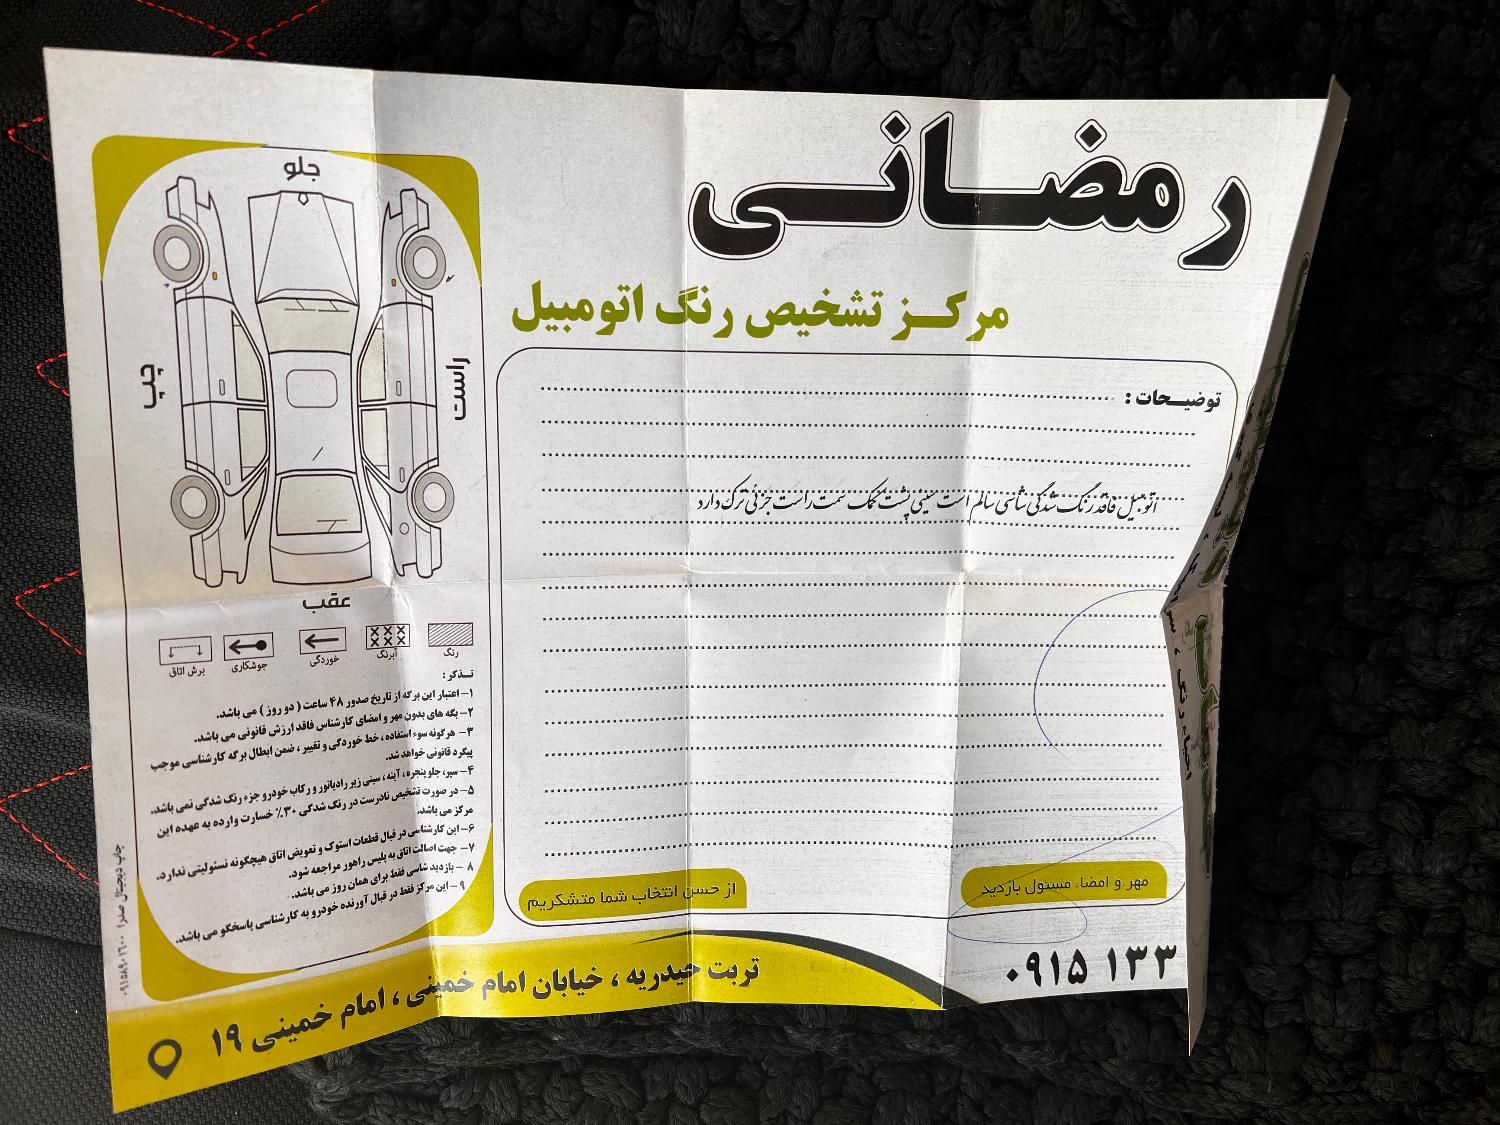 رمضانی
مرکز تشخیص رنگ اتومبیل
توضیحات :
اتومبیل فاقد رنگ شدگی شاسی سالم است سینی پشت کمک سمت راست جزئی ترک دارد
مهر و امضاء مسئول بازدید
از حسن انتخاب شما متشکریم
۰۹۱۵ ۱۳۳
تربت حیدریه ، خیابان امام خمینی ، امام خمینی ۱۹
جلو
راست
چپ
عقب
رنگ
آبرنگ
خوردگی
جوشکاری
برش اتاق
تذکر :
۱- اعتبار این برگه از تاریخ صدور ۴۸ ساعت ( دو روز ) می باشد.
۲- بگه های بدون مهر و امضای کارشناس فاقد ارزش قانونی می باشد.
۳- هرگونه سوء استفاده ، خط خوردگی و تغییر ، ضمن ابطال برگه کارشناسی موجب
پیگرد قانونی خواهد شد.
۴- سپر، جلو پنجره ، آینه ، سینی زیر رادیاتور و رکاب خودرو جزء رنگ شدگی نمی باشد.
۵- در صورت تشخیص نادرست در رنگ شدگی ۳۰٪ خسارت وارده به عهده این
مرکز می باشد.
۶- این کارشناسی در قبال قطعات استوک و تعویض اتاق هیچگونه نسئولیتی ندارد.
۷- جهت اصالت اتاق به پلیس راهور مراجعه شود.
۸ - بازدید شاسی فقط برای همان روز می باشد.
۹ - این مرکز فقط در قبال آورنده خودرو به کارشناسی پاسخگو می باشد.
چاپ دیجیتال صفرا ۰۹۱۵۸۹۰۲۶۰۰